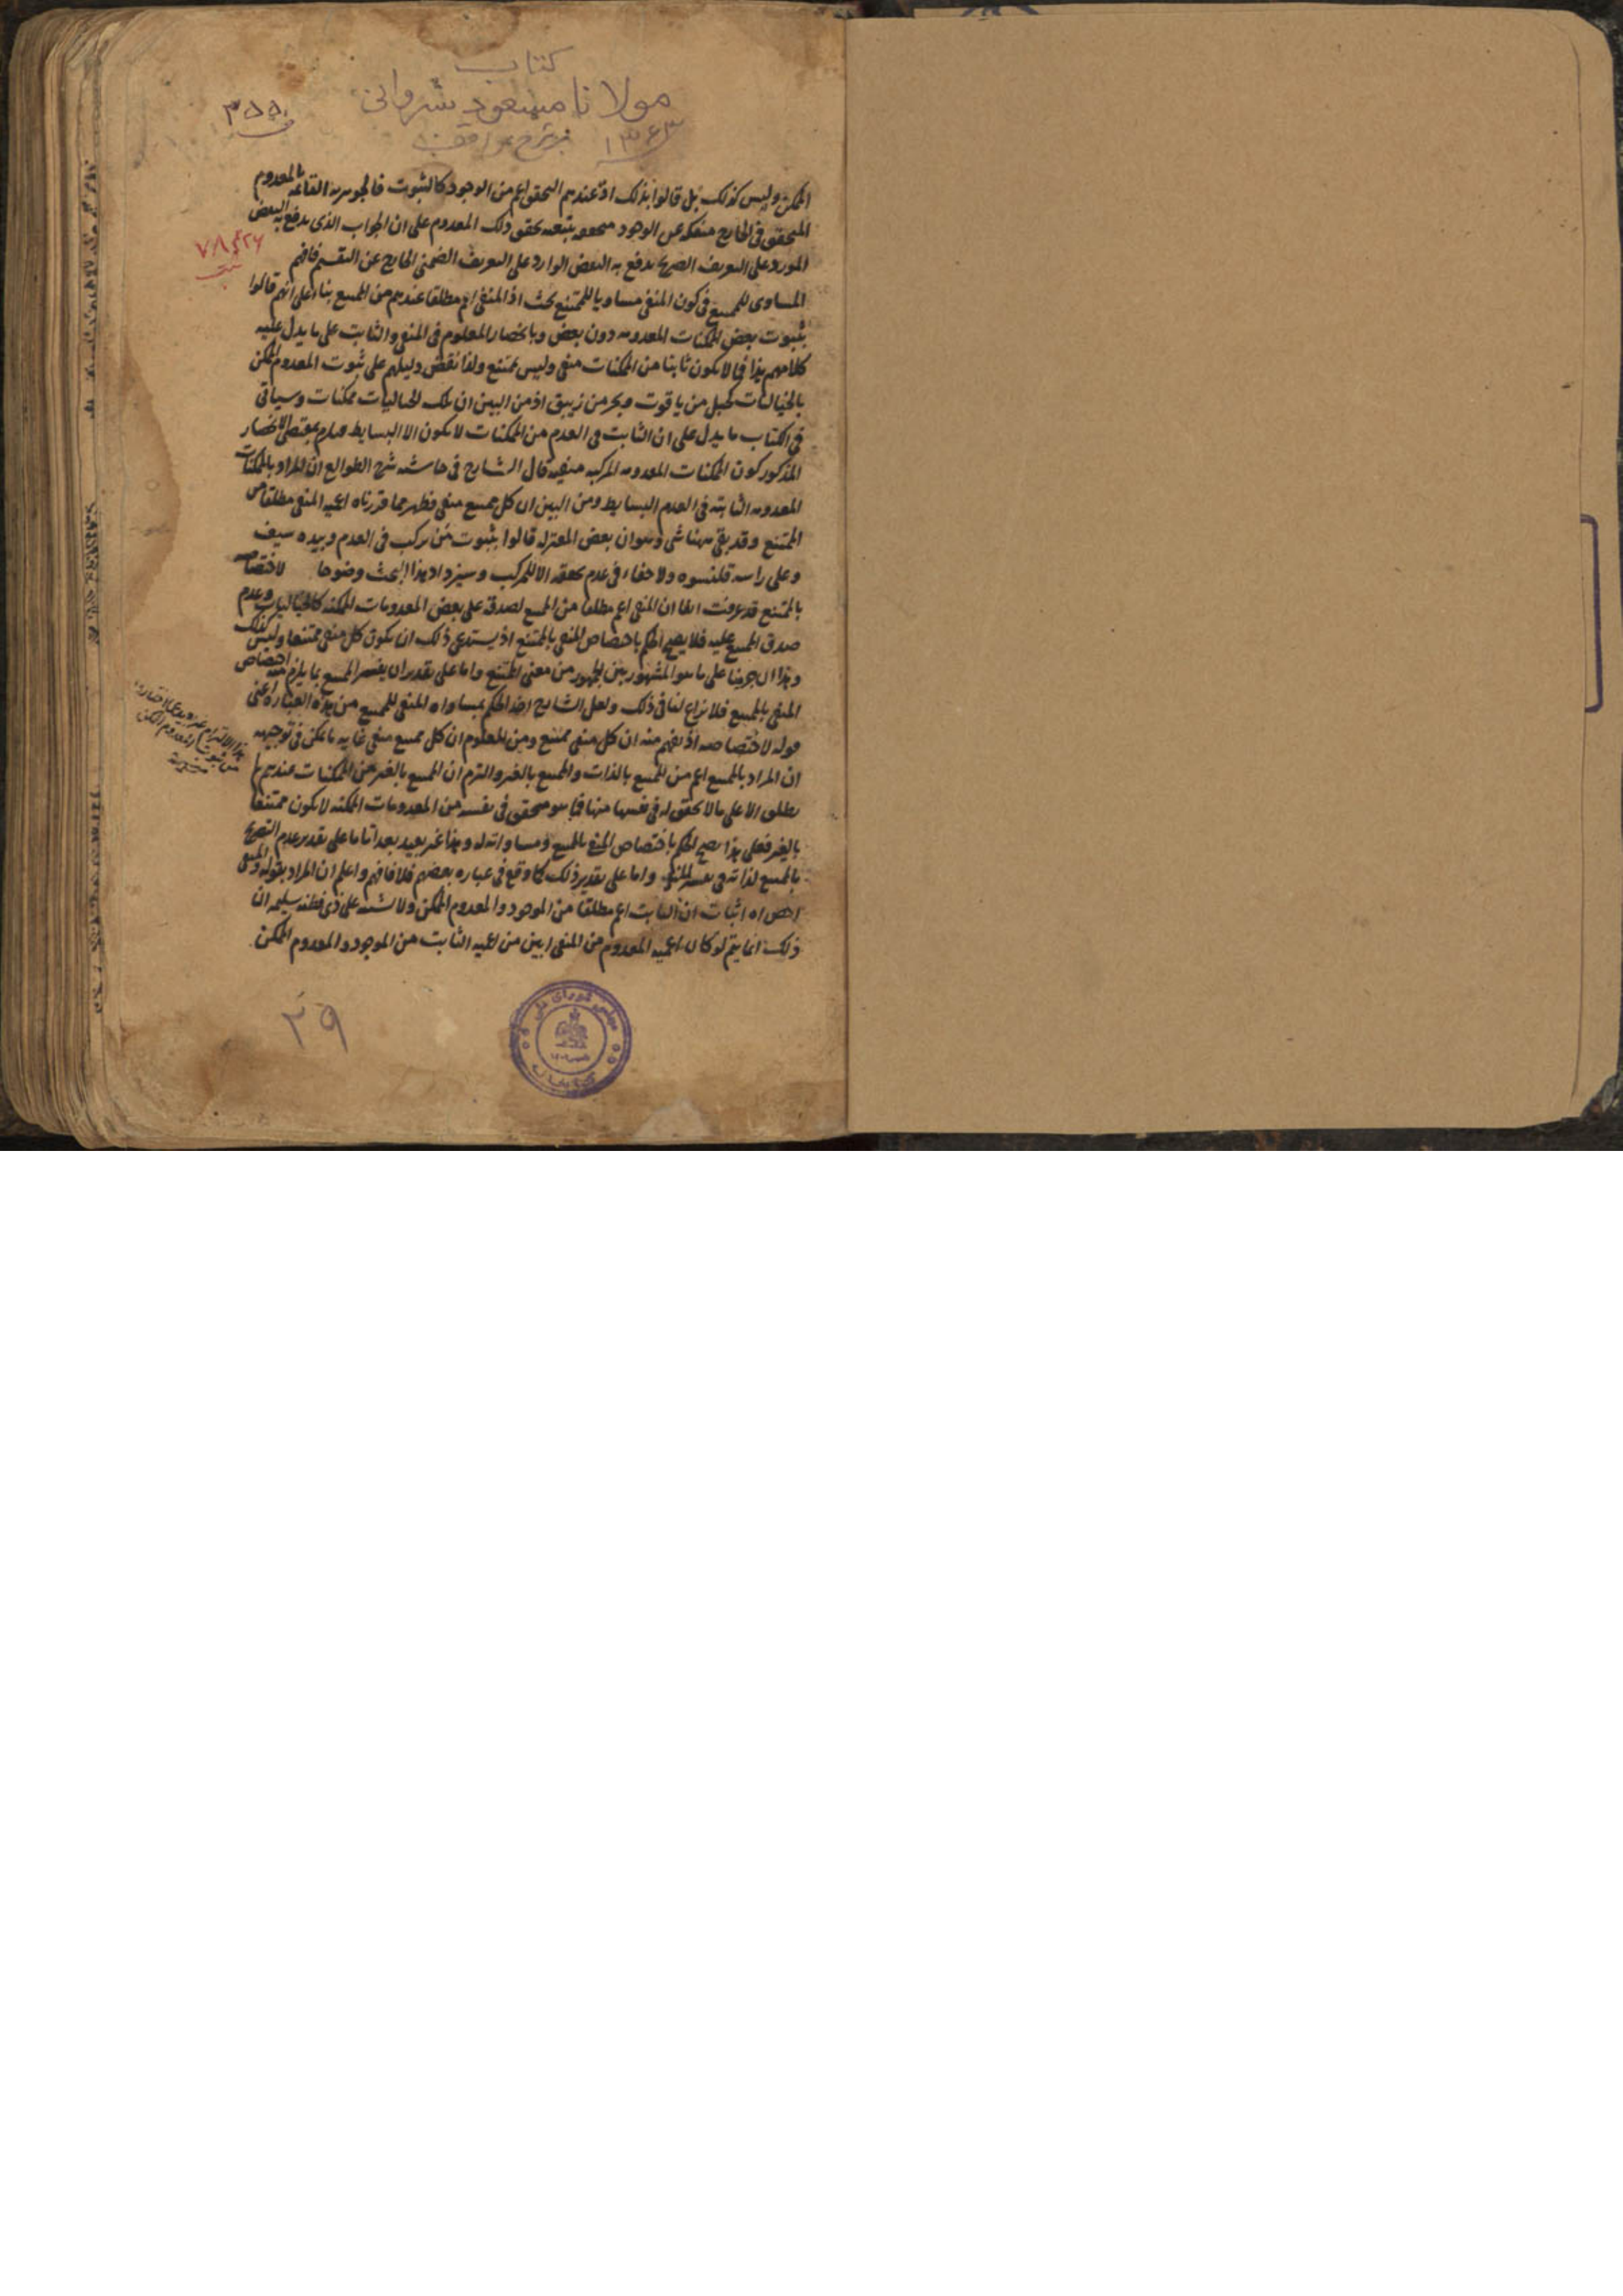 كتاب
مولانا مسعود شروانى
٣٥٥
١٣٤٣
بر شرح مواقف
الممكن وليس كذلك بل قالوا بذلك اذ عندهم التحقق اعم من الوجود كالثبوت فالجوهريه القائمه بالمعدوم
المتحقق فى الخارج منفكه عن الوجود متحققه بتبعيه تحقق ذلك المعدوم على ان الجواب الذى يدفع به البعض
المورد على التعريف الصريح يدفع به النقض الوارد على التعريف الضمنى الخارج عن التقسيم فافهم
٧٨٤٢٦
ثبت
المساوى للممتنع فى كون المنفى مساويا للممتنع بحث اذ المنفى اعم مطلقا عندهم من الممتنع بناء على انهم قالوا
بثبوت بعض الممكنات المعدومه دون بعض وبانحصار المعلوم فى المنفى والثابت على ما يدل عليه
كلامهم هذا فما لا يكون ثابتا من الممكنات منفى وليس بممتنع ولذا نقض دليلهم على ثبوت المعدوم الممكن
بالخياليات كجبل من ياقوت وبحر من زيبق اذ من البين ان تلك الخياليات ممكنات وسياتى
فى الكتاب ما يدل على ان الثابت فى العدم من الممكنات لا يكون الا البسايط فيلزم بمقتضى الانحصار
المذكور كون الممكنات المعدومه المركبه منفيه قال الشارح فى حاشيه شرح الطوالع ان المراد بالممكنات
المعدومه الثابته فى العدم البسايط ومن البين ان كل ممتنع منفى فظهر مما قررناه اعميه المنفى مطلقا من
الممتنع وقد بقى ههنا شى وهو ان بعض المعتزله قالوا بثبوت من يركب فى العدم وبيده سيف
وعلى راسه قلنسوه ولا خفاء فى عدم تحققه الا للمركب وسيزداد هذا البحث وضوحا لاختصاصه
بالممتنع قد عرفت انفا ان المنفى اعم مطلقا من الممتنع لصدقه على بعض المعدومات الممكنه كالخياليات وعدم
صدق الممتنع عليه فلا يصح الحكم باختصاص المنفى بالممتنع اذ يستدعى ذلك ان يكون كل منفى ممتنعا وليس كذلك
وهذا ان جرينا على ما هو المشهور بين الجمهور من معنى الممتنع واما على تقدير ان يفسر الممتنع بما يلزم منه اختصاص
المنفى بالممتنع فلا نزاع لنا فى ذلك ولعل الشارح اخذ الحكم بمساواه المنفى للممتنع من هذه العباره اعنى
قوله لاختصاصه اذ يفهم منه ان كل منفى ممتنع ومن المعلوم ان كل ممتنع منفى غايه ما يمكن فى توجيهه
ان المراد بالممتنع اعم من الممتنع بالذات والممتنع بالغير والتزم ان الممتنع بالغير من الممكنات عندهم لا
يطلق الا على ما لا تحقق له فى نفسها منها فما هو متحقق فى نفسه من المعدومات الممكنه لا يكون ممتنعا
بالغير فعلى هذا يصح الحكم باختصاص المنفى بالممتنع ومساواته له وهذا غير بعيد بعدا تاما على تقدير عدم التصريح
بالممتنع لذاته فى تفسير المنفى واما على تقدير ذلك كما وقع فى عباره بعضهم فلا فافهم واعلم ان المراد بقوله والمنفى
اخص اه اثبات ان الثابت اعم مطلقا من الموجود والمعدوم الممكن ولا شبهه على ذى فطنه سليمه ان
ذلك انما يتم لو كان اعميه المعدوم من المنفى ابين من اعميه الثابت من الموجود والمعدوم الممكن
٢٩
مجلس شوراى ملى
كتابخانه